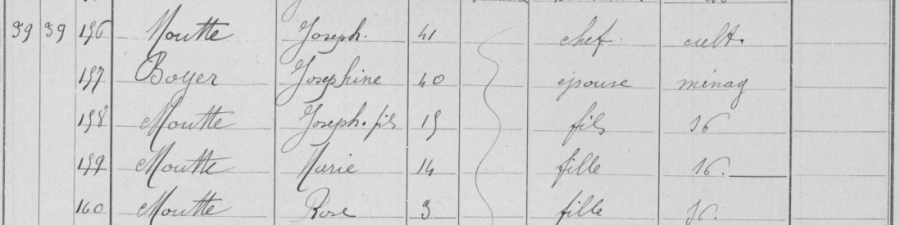 39 39 156 Moutte Joseph. 41 chef cult.
157 Boyer Joséphine 40 épouse ménag
158 Moutte Joseph. fils 15 fils
159 Moutte Marie 14 fille
160 Moutte Rose 3 fille